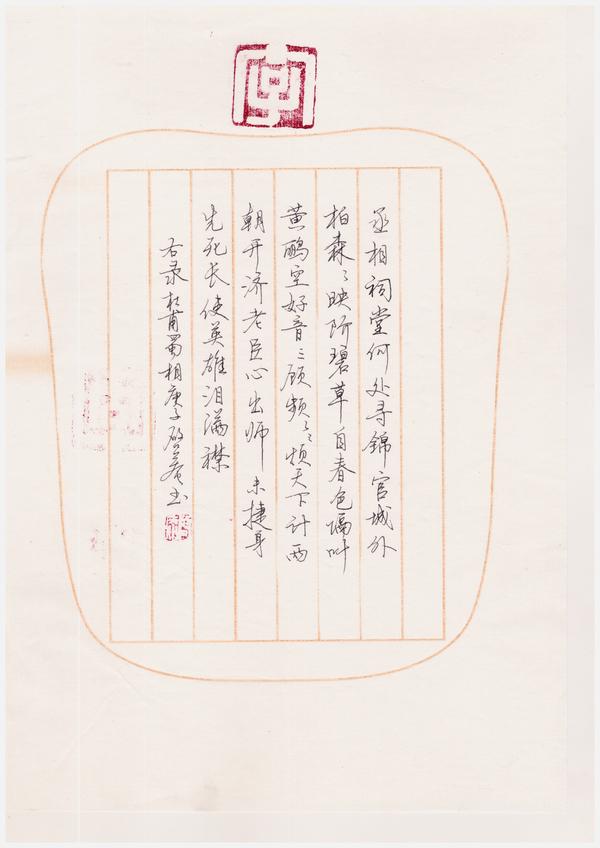 丞相祠堂何处寻锦官城外
柏森〻映阶碧草自春色隔叶
黄鹂空好音三顾频〻烦天下计两
朝开济老臣心出师未捷身
先死长使英雄泪满襟
右录杜甫蜀相庚子书